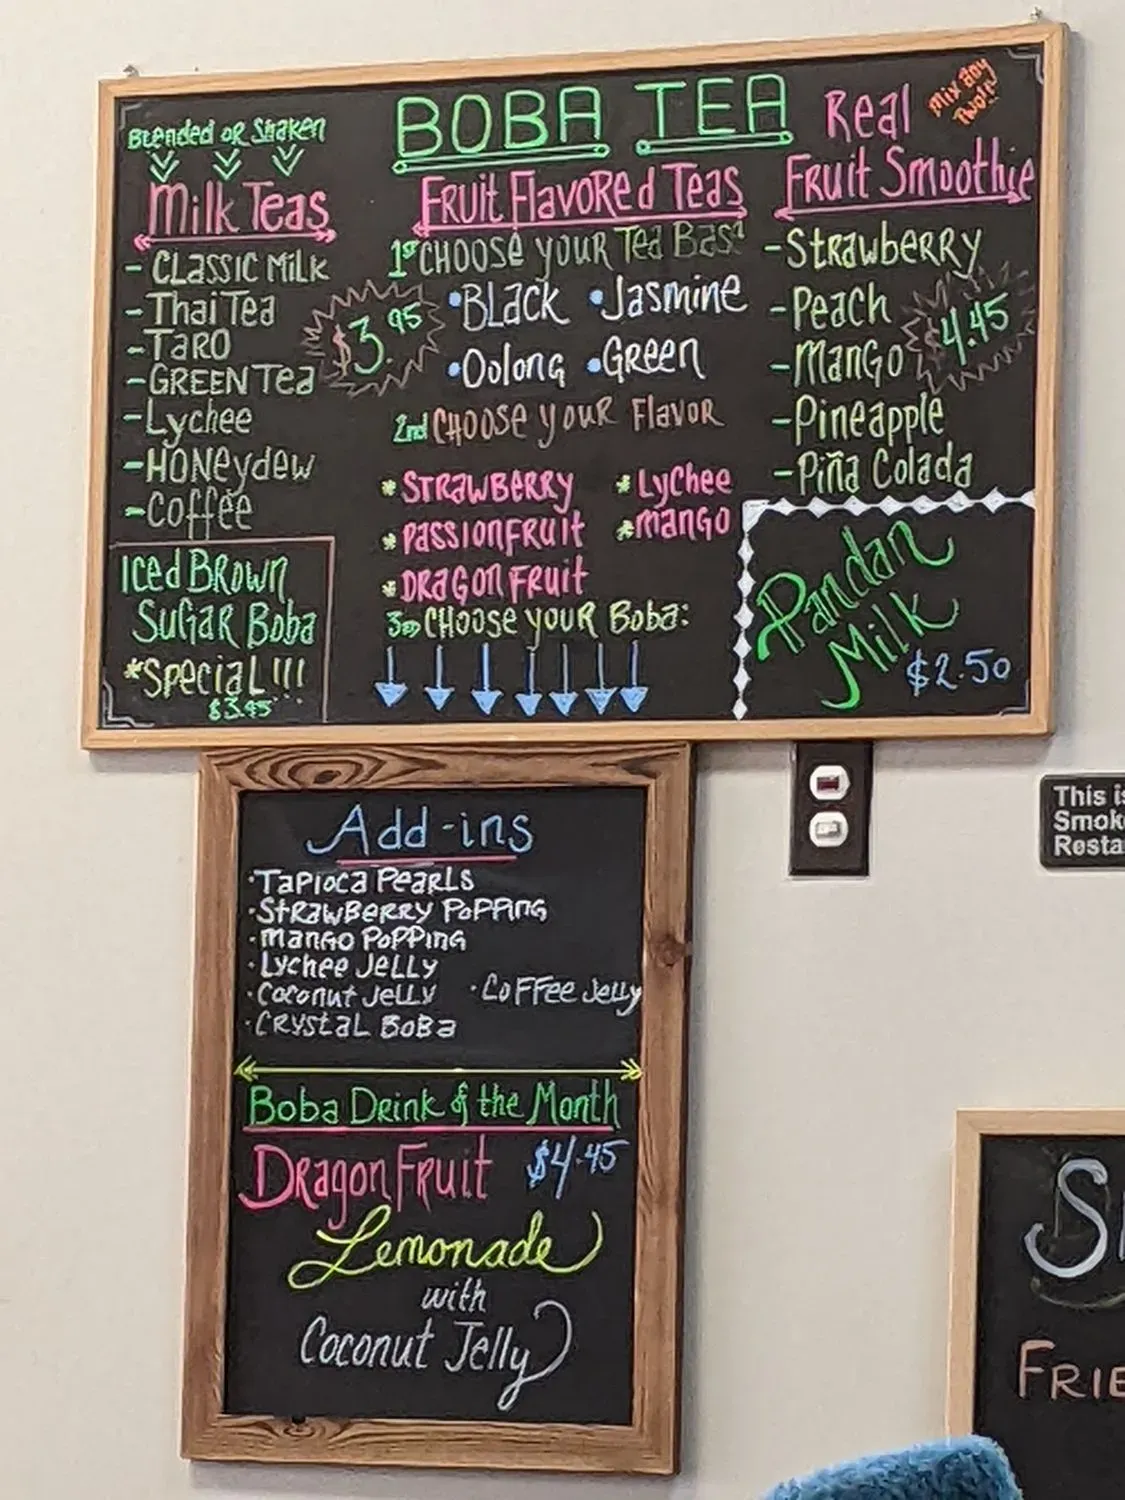 Blended or Shaken
Milk Teas
- Classic Milk
- Thai Tea
- Taro
- Green Tea
- Lychee
- Honeydew
- Coffee
$3.95
Iced Brown
Sugar Boba
*Special!!!
$3.95
BOBA TEA
Fruit Flavored Teas
1st Choose your Tea Base
•Black •Jasmine
•Oolong •Green
2nd Choose your Flavor
*Strawberry *Lychee
*Passionfruit *Mango
*Dragon Fruit
3rd Choose your Boba:
Mix any
Two!!
Real
Fruit Smoothie
- Strawberry
- Peach
- Mango
- Pineapple
- Piña Colada
$4.45
Pandan
Milk
$2.50
Add-ins
·Tapioca Pearls
·Strawberry Popping
·Mango Popping
·Lychee Jelly
·Coconut Jelly ·Coffee Jelly
·Crystal Boba
Boba Drink of the Month
Dragon Fruit $4.45
Lemonade
with
Coconut Jelly
This is
Smok
Resta
FRIE